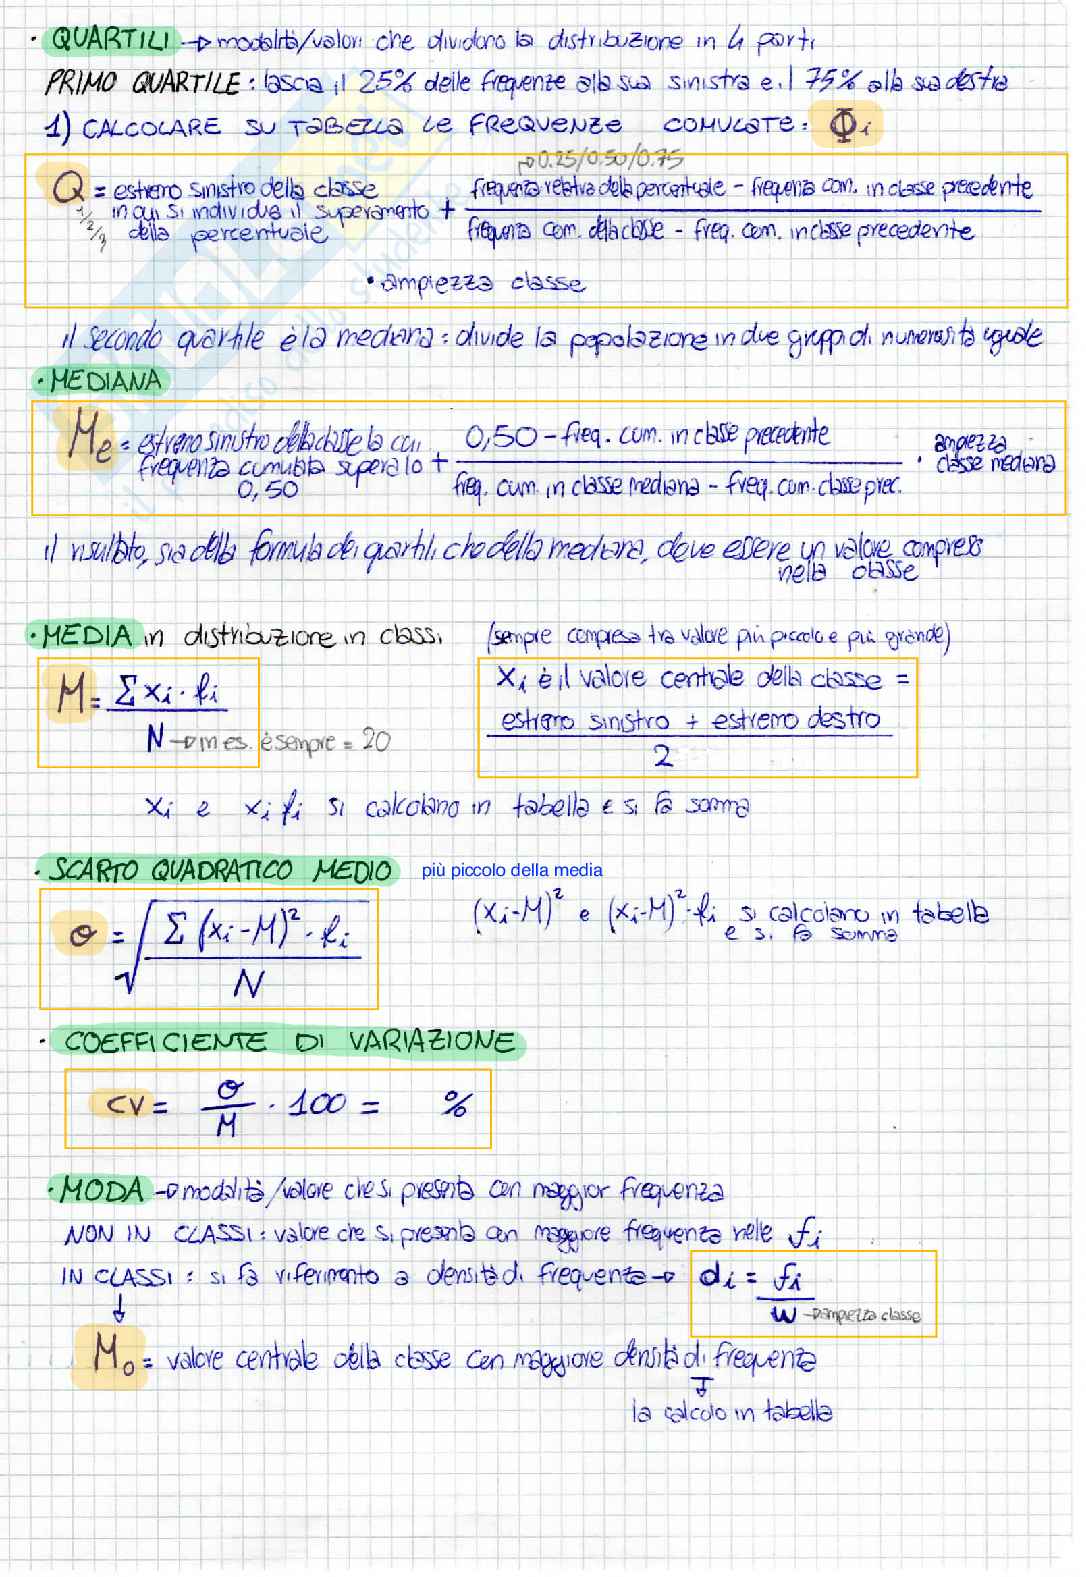 · QUARTILI → modalità/valori che dividono la distribuzione in 4 parti
PRIMO QUARTILE : lascia il 25% delle frequenze alla sua sinistra e il 75% alla sua destra
1) CALCOLARE SU TABELLA LE FREQUENZE COMULATE: Φi
→ 0.25/0.50/0.75
Q 1/2/3 = estremo sinistro della classe in cui si individua il superamento della percentuale + frequenza relativa della percentuale – frequenza com. in classe precedente
frequenza com. della classe – freq. com. in classe precedente
· ampiezza classe
il secondo quartile è la mediana : divide la popolazione in due gruppi di numerosità uguale
· MEDIANA
Me = estremo sinistro della classe la cui frequenza cumulata supera lo 0,50 + 0,50 – freq. cum. in classe precedente
freq. cum. in classe mediana – freq. cum. classe prec.
· ampiezza classe mediana
il risultato, sia della formula dei quartili che della mediana, deve essere un valore compreso
nella classe
· MEDIA in distribuzione in classi (sempre compresa tra valore più piccolo e più grande)
M = Σ xi · fi
N → in es. è sempre = 20
xi è il valore centrale della classe =
estremo sinistro + estremo destro
2
xi e xi fi si calcolano in tabella e si fa somma
· SCARTO QUADRATICO MEDIO più piccolo della media
σ = √ Σ (xi – M)² · fi
N
(xi-M)² e (xi-M)² · fi si calcolano in tabella
e si fa somma
· COEFFICIENTE DI VARIAZIONE
CV = σ
M · 100 = %
· MODA → modalità/valore che si presenta con maggior frequenza
NON IN CLASSI : valore che si presenta con maggiore frequenza nelle fi
IN CLASSI : si fa riferimento a densità di frequenza → di = fi
w → ampiezza classe
↓
Mo = valore centrale della classe con maggiore densità di frequenza
↓
la calcolo in tabella